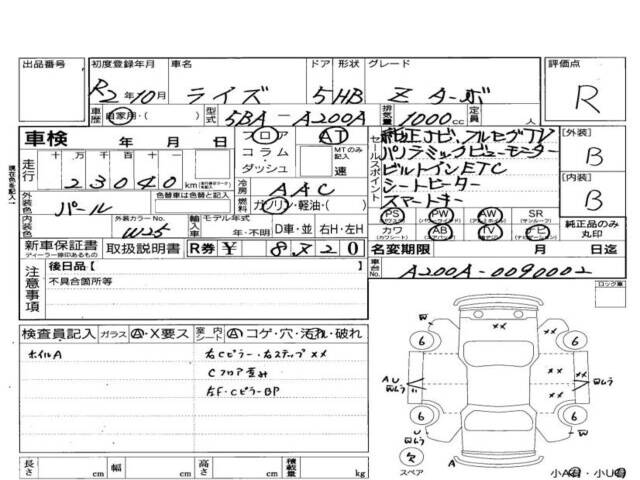 出品番号
初度登録年月 R2年10月
車名 ライズ
ドア 形状 5HB
グレード Z ターボ
評価点 R
車歴 自家用・( )
型式 5BA-A200A
排気量 1000cc
定員 人
車検 年 月 日
走行 十万千百十一
23040 km
フロア
コラム
ダッシュ
AT
MTのみ記入
速
セールスポイント
純正ナビ、フルセグTV
パノラミックビューモーター
ビルトインETC
シートヒーター
スマートキー
[外装] B
[内装] B
現在色を記入
外装色 パール
内装色
色替車は色替と記入
外装カラーNo. W25
冷房 AAC
燃料 ガソリン・軽油・( )
輸入車 モデル年式 年・不明
D車・並 右H・左H
PS PW AW SR
(パワステ) (サンルーフ)
カワ AB TV ナビ
(カワシート) (エアバック) (テレビ) (ナビゲーション)
純正品のみ丸印
新車保証書
ディーラー捺印あるもの
取扱説明書
R券 ¥ 8,720
名変期限 月 日迄
車台No. A200A-0090002
注意事項
後日品【
不具合箇所等
ロック車
検査員記入 ガラス A・X要ス
室内シート A コゲ・穴・汚れ・破れ
ホイルA
右Cピラー・右ステップXX
Cフロア歪み
左F・CピラーBP
XX
6
6
6
6
A U
XX
XX
U
A
スペア
長さ cm 幅 cm 高さ cm 積載量 kg
小A有・小U有